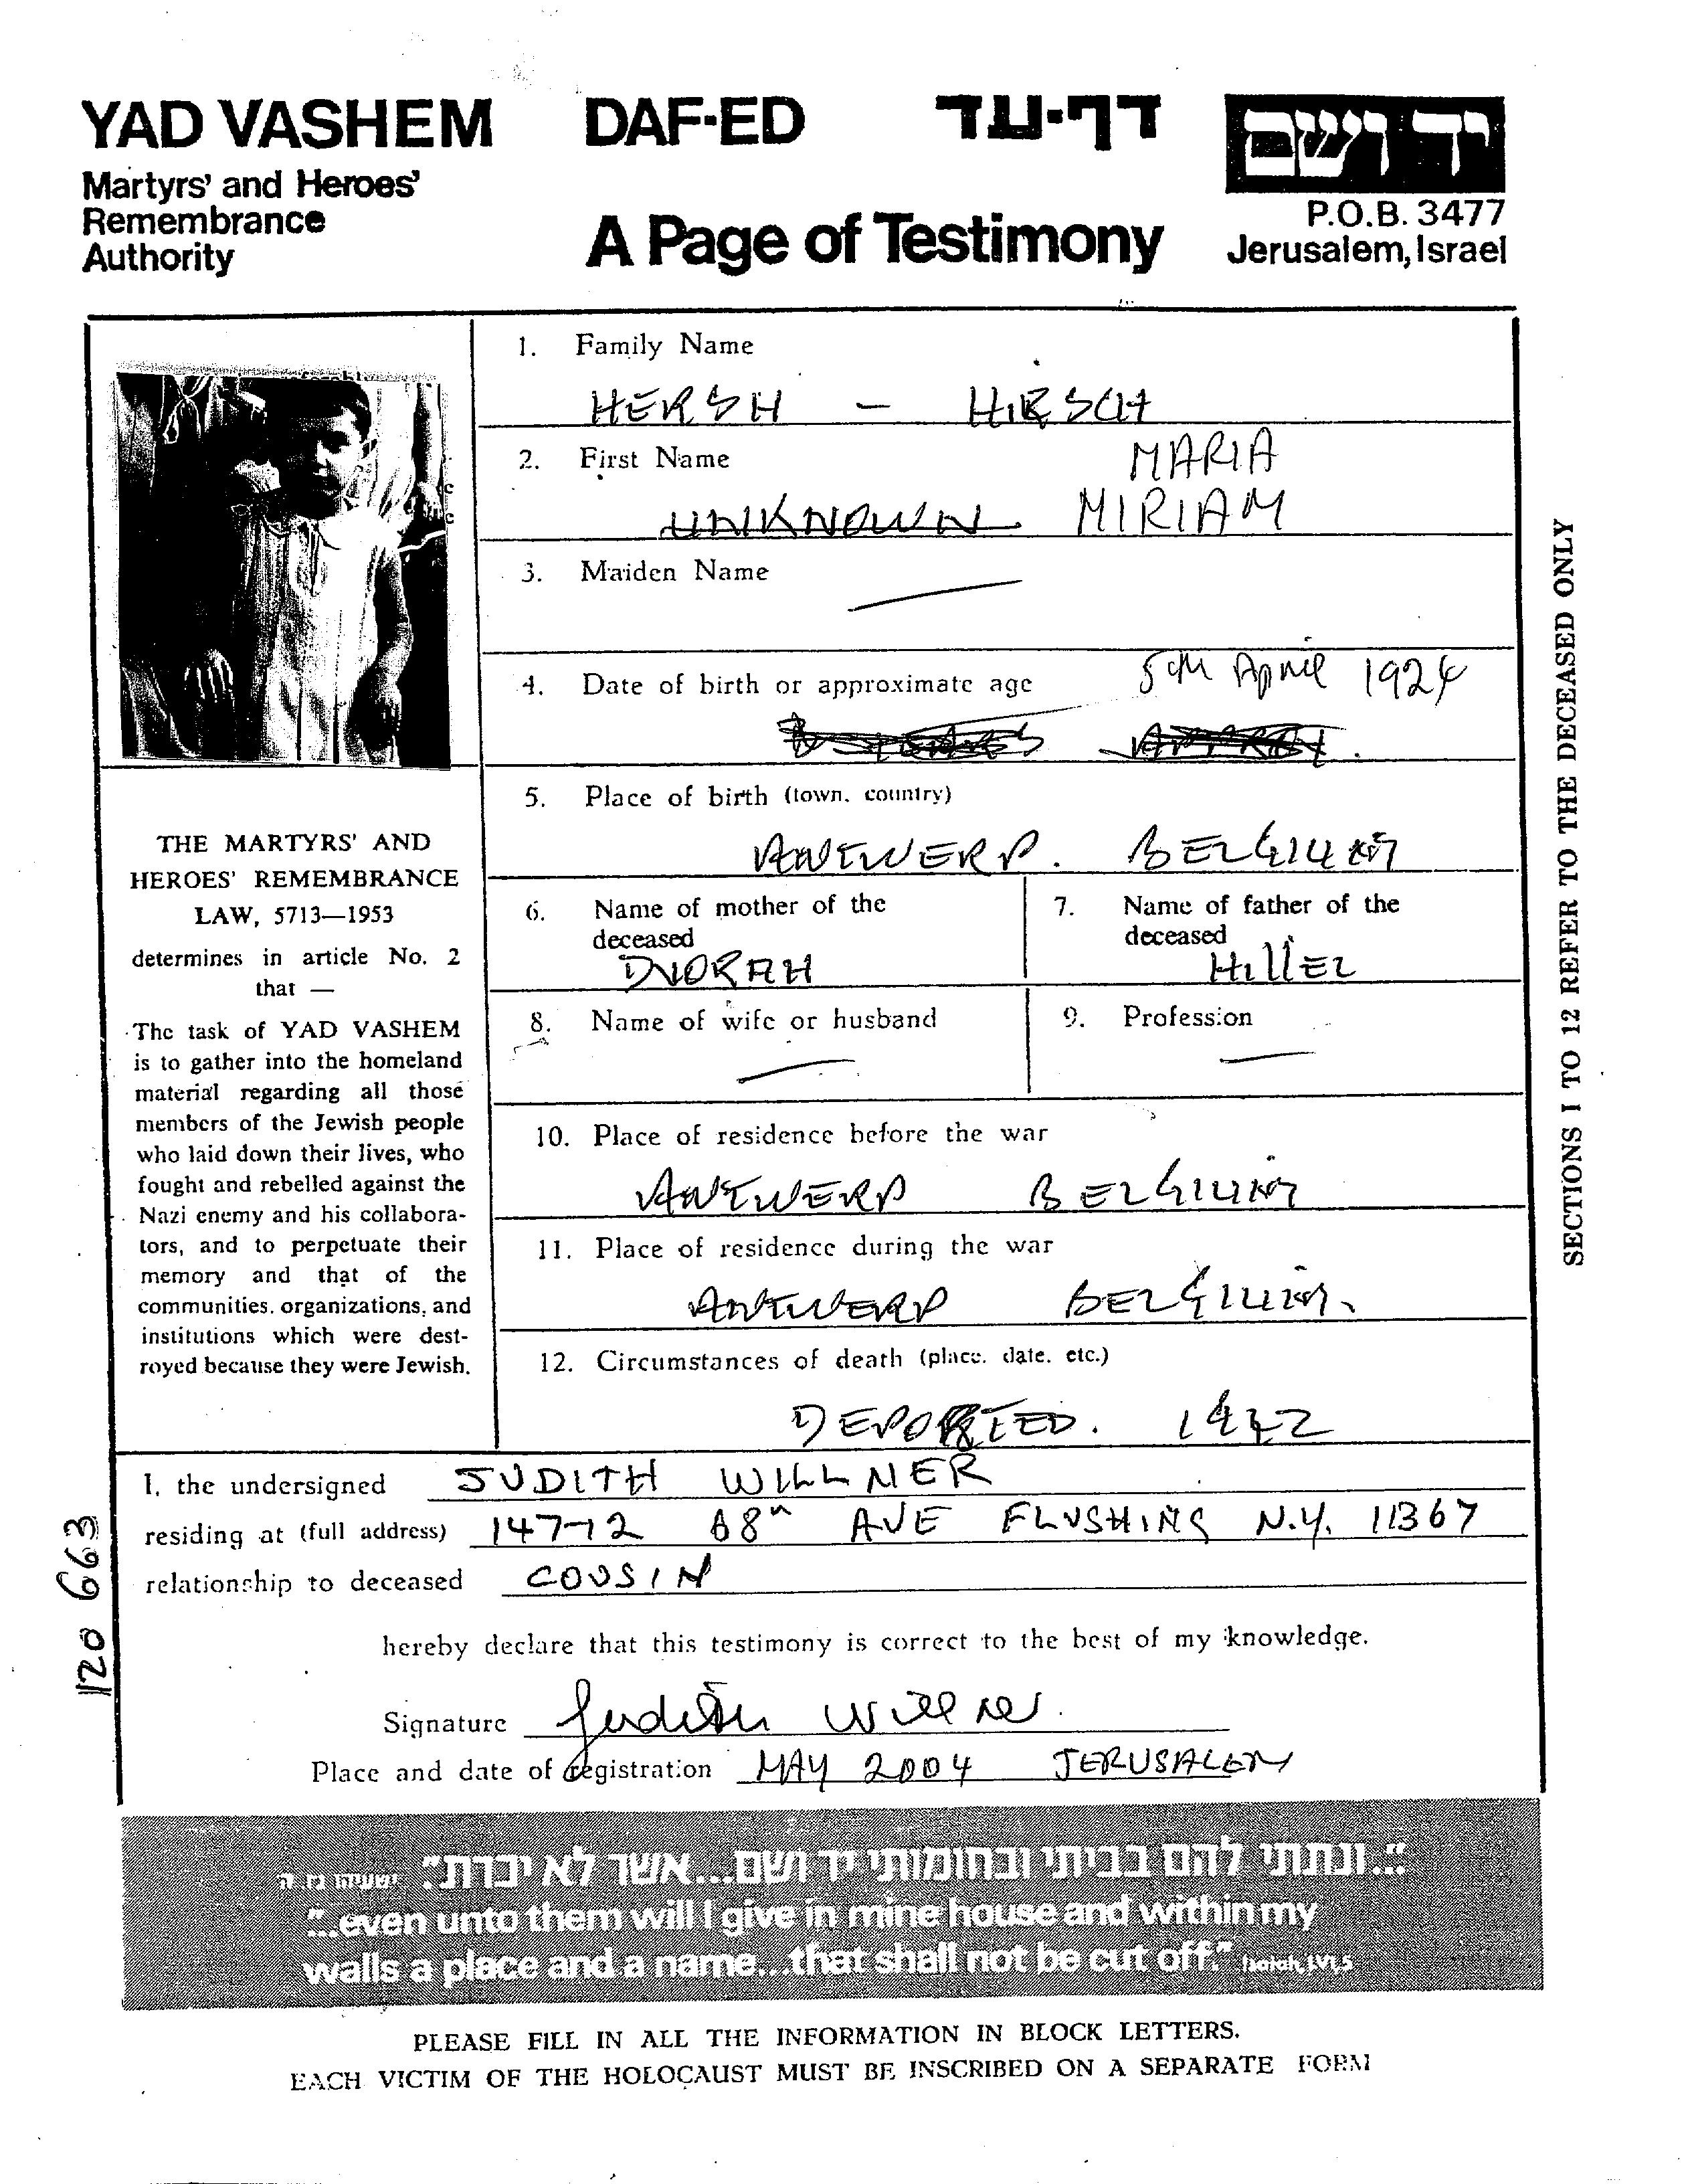 YAD VASHEM DAF-ED דף-עד יד ושם
Martyrs' and Heroes'
Remembrance
Authority
A Page of Testimony
P.O.B. 3477
Jerusalem, Israel
1. Family Name
HERSH - HIRSCH
2. First Name MARIA
UNKNOWN MIRIAM
3. Maiden Name
4. Date of birth or approximate age 5th April 1924
5. Place of birth (town, country)
ANTWERP. BELGIUM
6. Name of mother of the
deceased
DVORAH
7. Name of father of the
deceased
HillEL
8. Name of wife or husband
9. Profession
10. Place of residence before the war
ANTWERP BELGIUM
11. Place of residence during the war
ANTWERP BELGIUM.
12. Circumstances of death (place, date, etc.)
DEPORTED. 1942
THE MARTYRS' AND
HEROES' REMEMBRANCE
LAW, 5713—1953
determines in article No. 2
that —
The task of YAD VASHEM
is to gather into the homeland
material regarding all those
members of the Jewish people
who laid down their lives, who
fought and rebelled against the
Nazi enemy and his collabora-
tors, and to perpetuate their
memory and that of the
communities, organizations, and
institutions which were dest-
royed because they were Jewish.
SECTIONS 1 TO 12 REFER TO THE DECEASED ONLY
I, the undersigned JUDITH WILLNER
residing at (full address) 147-12 68th AVE FLUSHING N.Y. 11367
relationship to deceased COUSIN
hereby declare that this testimony is correct to the best of my knowledge.
Signature Judith Willner
Place and date of registration MAY 2004 JERUSALEM
120 663
"...ונתתי להם בביתי ובחומותי יד ושם...אשר לא יכרת." ישעיהו נו, ה
"...even unto them will I give in mine house and within my
walls a place and a name...that shall not be cut off." Isaiah, LVI,5
PLEASE FILL IN ALL THE INFORMATION IN BLOCK LETTERS.
EACH VICTIM OF THE HOLOCAUST MUST BE INSCRIBED ON A SEPARATE FORM